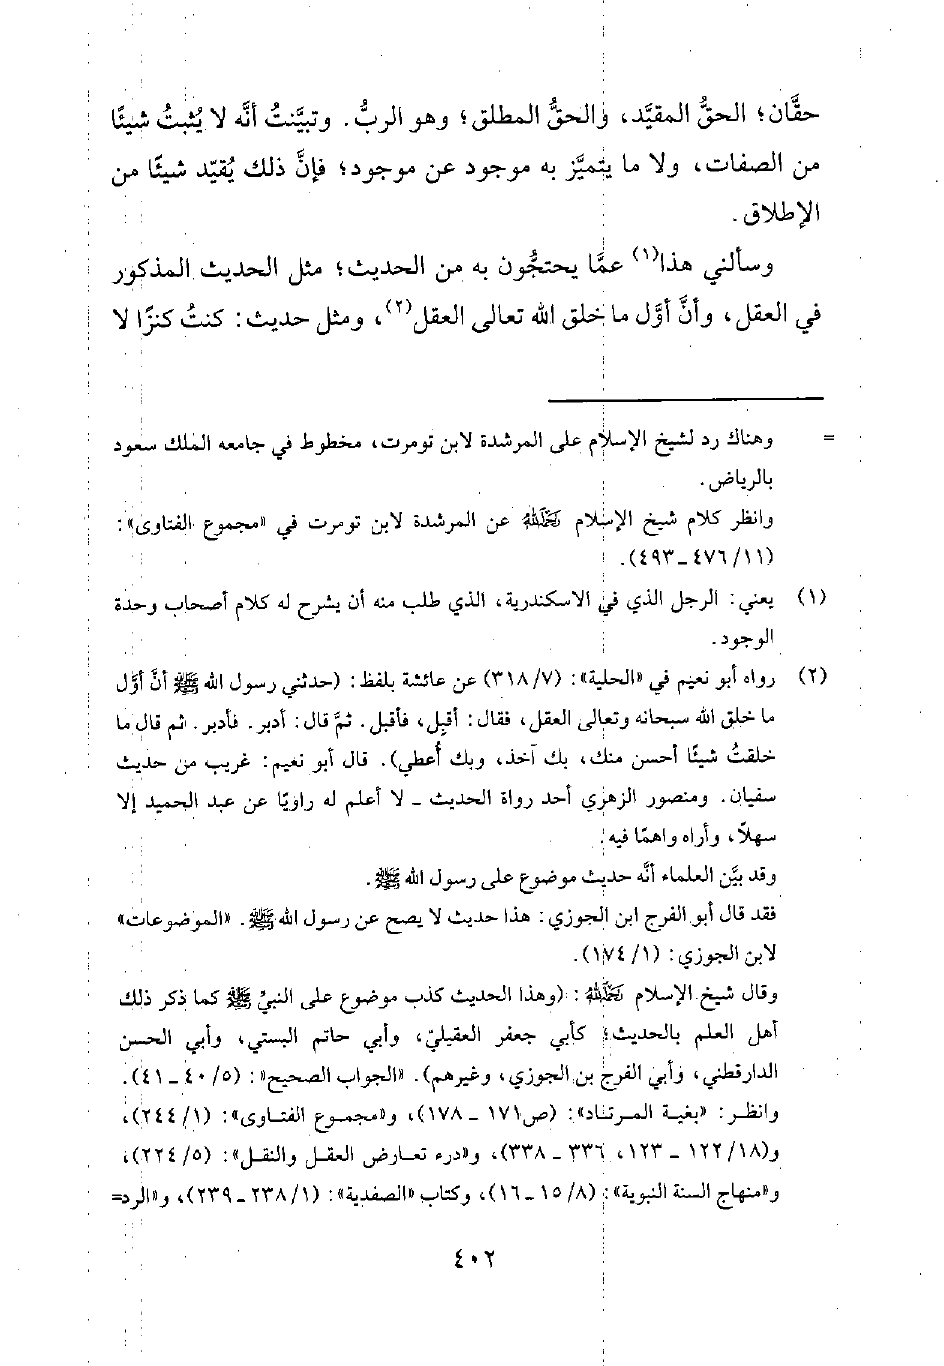 حقَّان؛ الحقُّ المقيَّد، والحقُّ المطلق؛ وهو الربُّ. وتبيَّنتُ أنَّه لا يُثبتُ شيئًا
من الصفات، ولا ما يتميَّز به موجود عن موجود؛ فإنَّ ذلك يُقيّد شيئًا من
الإطلاق.
وسألني هذا(١) عمَّا يحتجُّون به من الحديث؛ مثل الحديث المذكور
في العقل، وأنَّ أوَّل ما خلق الله تعالى العقل(٢)، ومثل حديث: كنتُ كنزًا لا
= وهناك رد لشيخ الإسلام على المرشدة لابن تومرت، مخطوط في جامعه الملك سعود
بالرياض.
وانظر كلام شيخ الإسلام رحمه الله عن المرشدة لابن تومرت في «مجموع الفتاوى»:
(١١/ ٤٧٦ ـ ٤٩٣).
(١) يعني: الرجل الذي في الاسكندرية، الذي طلب منه أن يشرح له كلام أصحاب وحدة
الوجود.
(٢) رواه أبو نعيم في «الحلية»: (٧/ ٣١٨) عن عائشة بلفظ: (حدثني رسول الله ﷺ أنَّ أوَّل
ما خلق الله سبحانه وتعالى العقل، فقال: أقبِل، فأقبل. ثمَّ قال: أدبر. فأدبر. ثم قال ما
خلقتُ شيئًا أحسن منك، بك آخذ، وبك أُعطي). قال أبو نعيم: غريب من حديث
سفيان. ومنصور الزهري أحد رواة الحديث ـ لا أعلم له راويًا عن عبد الحميد إلا
سهلاً، وأراه واهمًا فيه.
وقد بيَّن العلماء أنَّه حديث موضوع على رسول الله ﷺ.
فقد قال أبو الفرج ابن الجوزي: هذا حديث لا يصح عن رسول الله ﷺ. «الموضوعات»
لابن الجوزي: (١/ ١٧٤).
وقال شيخ الإسلام رحمه الله: (وهذا الحديث كذب موضوع على النبيِّ ﷺ كما ذكر ذلك
أهل العلم بالحديث؛ كأبي جعفر العقيليّ، وأبي حاتم البستي، وأبي الحسن
الدارقطني، وأبي الفرج بن الجوزي، وغيرهم). «الجواب الصحيح»: (٥/ ٤٠ ـ ٤١).
وانظر: «بغية المرتاد»: (ص١٧١ ـ ١٧٨)، و«مجموع الفتاوى»: (١/ ٢٤٤)،
و(١٨/ ١٢٢ ـ ١٢٣، ٣٣٦ ـ ٣٣٨)، و«درء تعارض العقل والنقل»: (٥/ ٢٢٤)،
و«منهاج السنة النبوية»: (٨/ ١٥ ـ ١٦)، وكتاب «الصفدية»: (١/ ٢٣٨ ـ ٢٣٩)، و«الرد=
٤٠٢